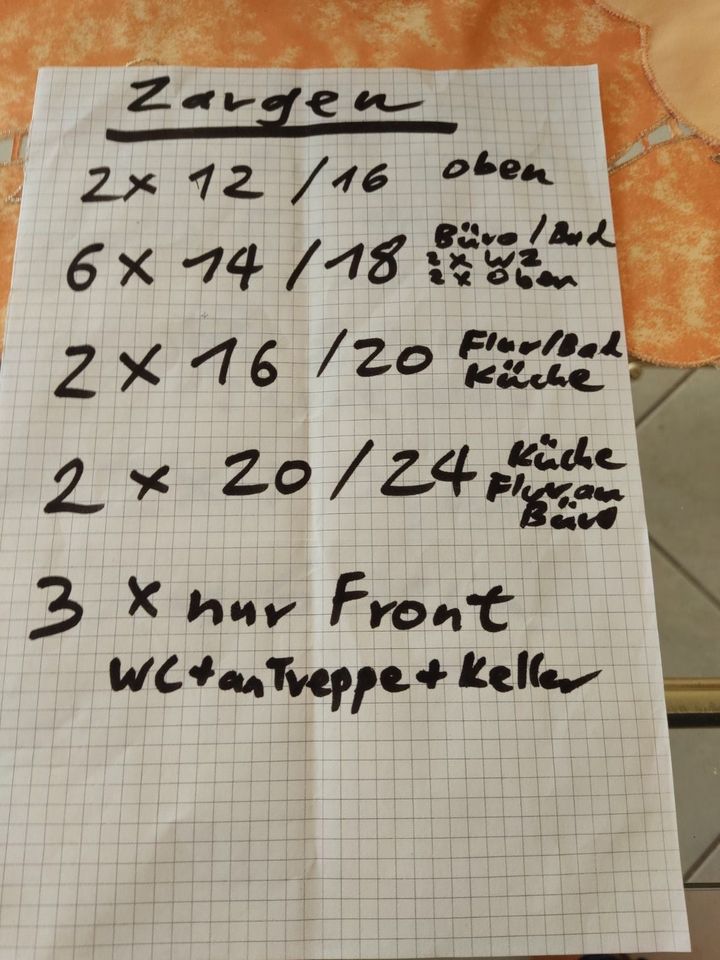 Zargen
2x 12 / 16 oben
6 x 14 / 18 Büro / Bad
2 x WZ
2 x oben
2 x 16 / 20 Flur/Bad
Küche
2 x 20 / 24 Küche
Flur, am
Büro
3 x nur Front
WC + an Treppe + Keller